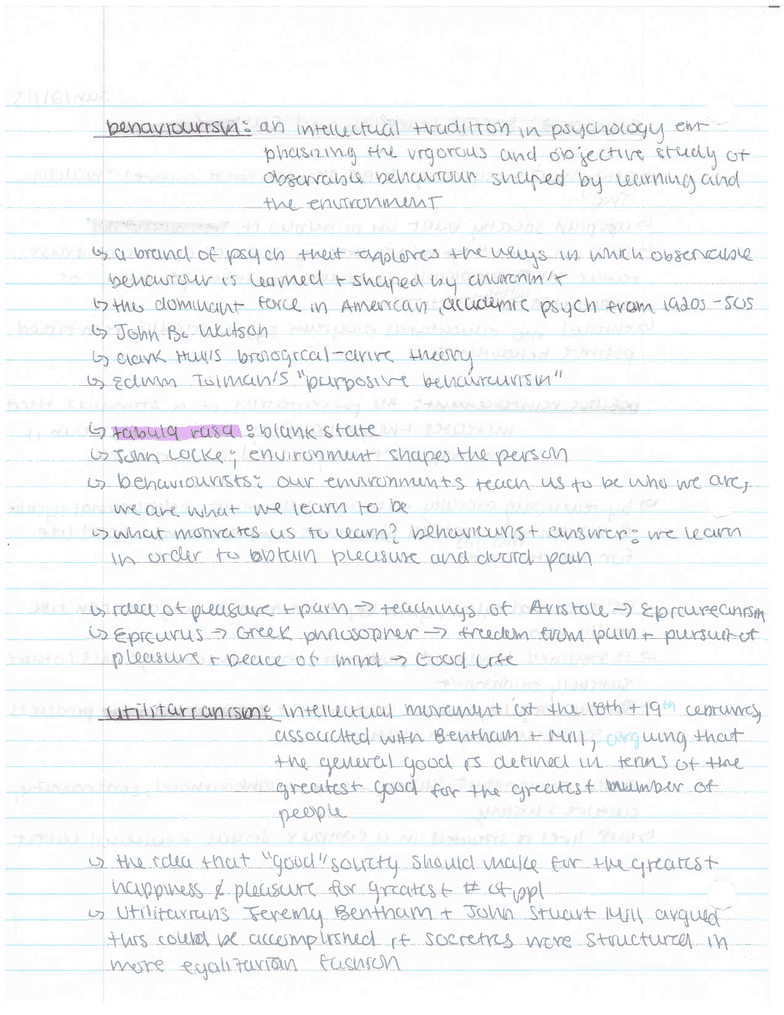 behaviourism: an intellectual tradition in psychology em-
phasizing the vigorous and objective study of
observable behaviour shaped by learning and
the environment
↳ a brand of psych that explores the ways in which observable
behaviour is learned + shaped by environm't
↳ the dominant force in American academic psych from 1920s-50s
↳ John B. Watson
↳ Clark Hull's biological-drive theory
↳ Edwin Tolman's "purposive behaviourism"
↳ tabula rasa: blank state
↳ John Locke; environment shapes the person
↳ behaviourists: our environments teach us to be who we are,
we are what we learn to be
↳ what motivates us to learn? behaviourist answer: we learn
in order to obtain pleasure and avoid pain
↳ idea of pleasure + pain → teachings of Aristole → Epicureanism
↳ Epicurus → Greek philosopher → freedom from pain + pursuit of
pleasure + peace of mind → Good Life
utilitarianism: intellectual movement of the 18th + 19th centuries,
associated with Bentham + Mill, arguing that
the general good is defined in terms of the
greatest good for the greatest number of
people
↳ the idea that "good" society should make for the greatest
happiness & pleasure for greatest # of ppl
↳ Utilitarians Jeremy Bentham + John Stuart Mill argued
this could be accomplished if societies were structured in
more egalitarian fashion